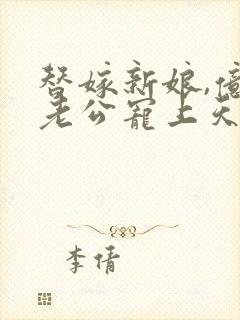 替嫁新娘,億
老公寵上天
李倩